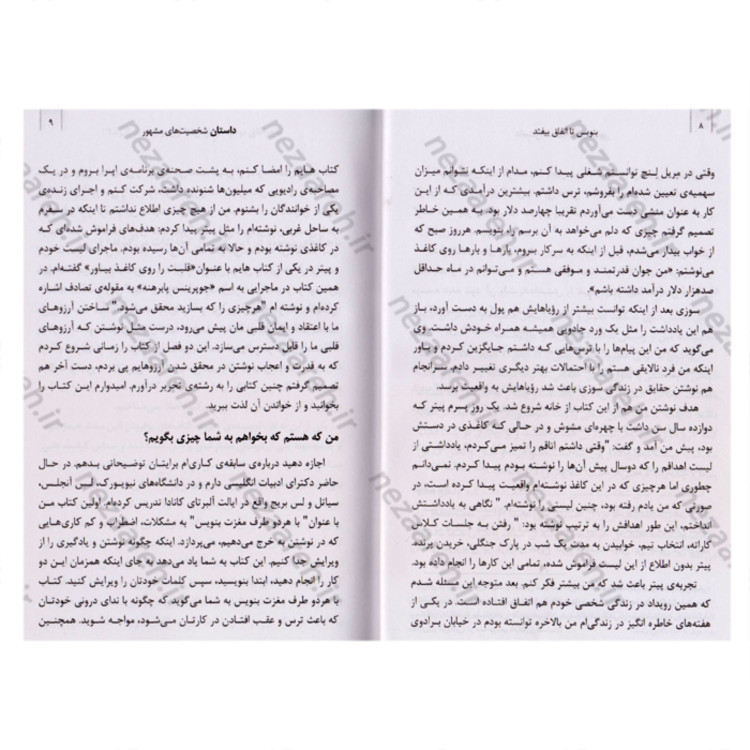 ۸
بنویس تا اتفاق بیفتد
وقتی در مریل لینچ توانستم شغلی پیدا کنم، مدام از اینکه نتوانم میزان
سهمیه‌ی تعیین شده‌ام را بفروشم، ترس داشتم. بیشترین درآمدی که از این
کار به عنوان منشی دست می‌آوردم تقریبا چهارصد دلار بود. به همین خاطر
تصمیم گرفتم چیزی که دلم می‌خواهد به آن برسم را، بنویسم. هرروز صبح که
از خواب بیدار می‌شدم، قبل از اینکه به سرکار بروم، بارها و بارها روی کاغذ
می‌نوشتم: «من جوان قدرتمند و موفقی هستم و می‌توانم در ماه حداقل
صدهزار دلار درآمد داشته باشم».
سوزی بعد از اینکه توانست بیشتر از رؤیاهایش هم پول به دست آورد، باز
هم این یادداشت را مثل یک ورد جادویی همیشه همراه خودش داشت. وی
می‌گوید که من این پیام‌ها را با ترس‌هایی که داشتم جایگزین کردم و باور
اینکه من فرد نالایقی هستم را با احتمالات بهتر دیگری تغییر دادم. سرانجام
هم نوشتن حقایق در زندگی سوزی باعث شد رؤیاهایش به واقعیت برسد.
هدف نوشتن من هم از این کتاب از خانه شروع شد. یک روز پسرم پیتر که
دوازده سال سن داشت با چهره‌ای مشوش و در حالی که کاغذی در دستش
بود، پیش من آمد و گفت: "وقتی داشتم اتاقم را تمیز می‌کردم، یادداشتی از
لیست اهدافم را که دوسال پیش آن‌ها را نوشته بودم پیدا کردم. نمی‌دانم
چطوری اما هرچیزی که در این کاغذ نوشته‌ام واقعیت پیدا کرده است، در
صورتی که من یادم رفته بود، چنین لیستی را نوشته‌ام." نگاهی به یادداشتش
انداختم، این طور اهدافش را به ترتیب نوشته بود: " رفتن به جلسات کلاس
کاراته، انتخاب تیم، خوابیدن به مدت یک شب در پارک جنگلی، خریدن پرنده.
پیتر بدون اطلاع از این لیست فراموش شده، تمامی این کارها را انجام داده بود.
تجربه‌ی پیتر باعث شد که من بیشتر فکر کنم. بعد متوجه این مسئله شدم
که همین رویداد در زندگی شخصی خودم هم اتفاق افتاده است. در یکی از
هفته‌های خاطره انگیز در زندگی‌ام من بالاخره توانسته بودم در خیابان برادوی
داستان شخصیت‌های مشهور
۹
کتاب هایم را امضا کنم، به پشت صحنه‌ی برنامه‌ی اپرا بروم و در یک
مصاحبه‌ی رادیویی که میلیون‌ها شنونده داشت، شرکت کنم و اجرای زنده‌ی
یکی از خوانندگان را بشنوم. من از هیچ چیزی اطلاع نداشتم تا اینکه در سفرم
به ساحل غربی، نوشته‌ام را مثل پیتر پیدا کردم: هدف‌های فراموش شده‌ای که
در کاغذی نوشته بودم و حالا به تمامی آن‌ها رسیده بودم. ماجرای لیست خودم
و پیتر در یکی از کتاب هایم با عنوان«قلبت را روی کاغذ بیاور» گفته‌ام. در
همین کتاب در ماجرایی به اسم «جوپرینس پابرهنه» به مقوله‌ی تصادف اشاره
کرده‌ام و نوشته ام "هرچیزی را که بسازید محقق می‌شود." ساختن آرزوهای
ما با اعتقاد و ایمان قلبی مان پیش می‌رود، درست مثل نوشتن که آرزوهای
قلبی ما را قابل دسترس می‌سازد. این دو فصل از کتاب را زمانی شروع کردم
که به قدرت و اعجاب نوشتن در محقق شدن آرزوهایم پی بردم، دست آخر هم
تصمیم گرفتم چنین کتابی را به رشته‌ی تحریر درآورم. امیدوارم این کتاب را
بخوانید و از خواندن آن لذت ببرید.
من که هستم که بخواهم به شما چیزی بگویم؟
اجازه دهید درباره‌ی سابقه‌ی کاری‌ام برایتان توضیحاتی بدهم. در حال
حاضر دکترای ادبیات انگلیسی دارم و در دانشگاه‌های نیویورک، لس آنجلس،
سیاتل و لس بریج واقع در ایالت آلبرتای کانادا تدریس کرده‌ام. اولین کتاب من
با عنوان" با هردو طرف مغزت بنویس" به مشکلات، اضطراب و کم کاری‌هایی
که در نوشتن به خرج می‌دهیم، می‌پردازد. اینکه چگونه نوشتن و یادگیری را از
ویرایش جدا کنیم. این کتاب به شما یاد می‌دهد به جای اینکه همزمان این دو
کار را انجام دهید، ابتدا بنویسید، سپس کلمات خودتان را ویرایش کنید. کتاب
با هردو طرف مغزت بنویس به شما می‌گوید که چگونه با ندای درونی خودتان
که باعث ترس و عقب افتادن در کارتان می‌شود، مواجه شوید. همچنین
nezaareh.ir